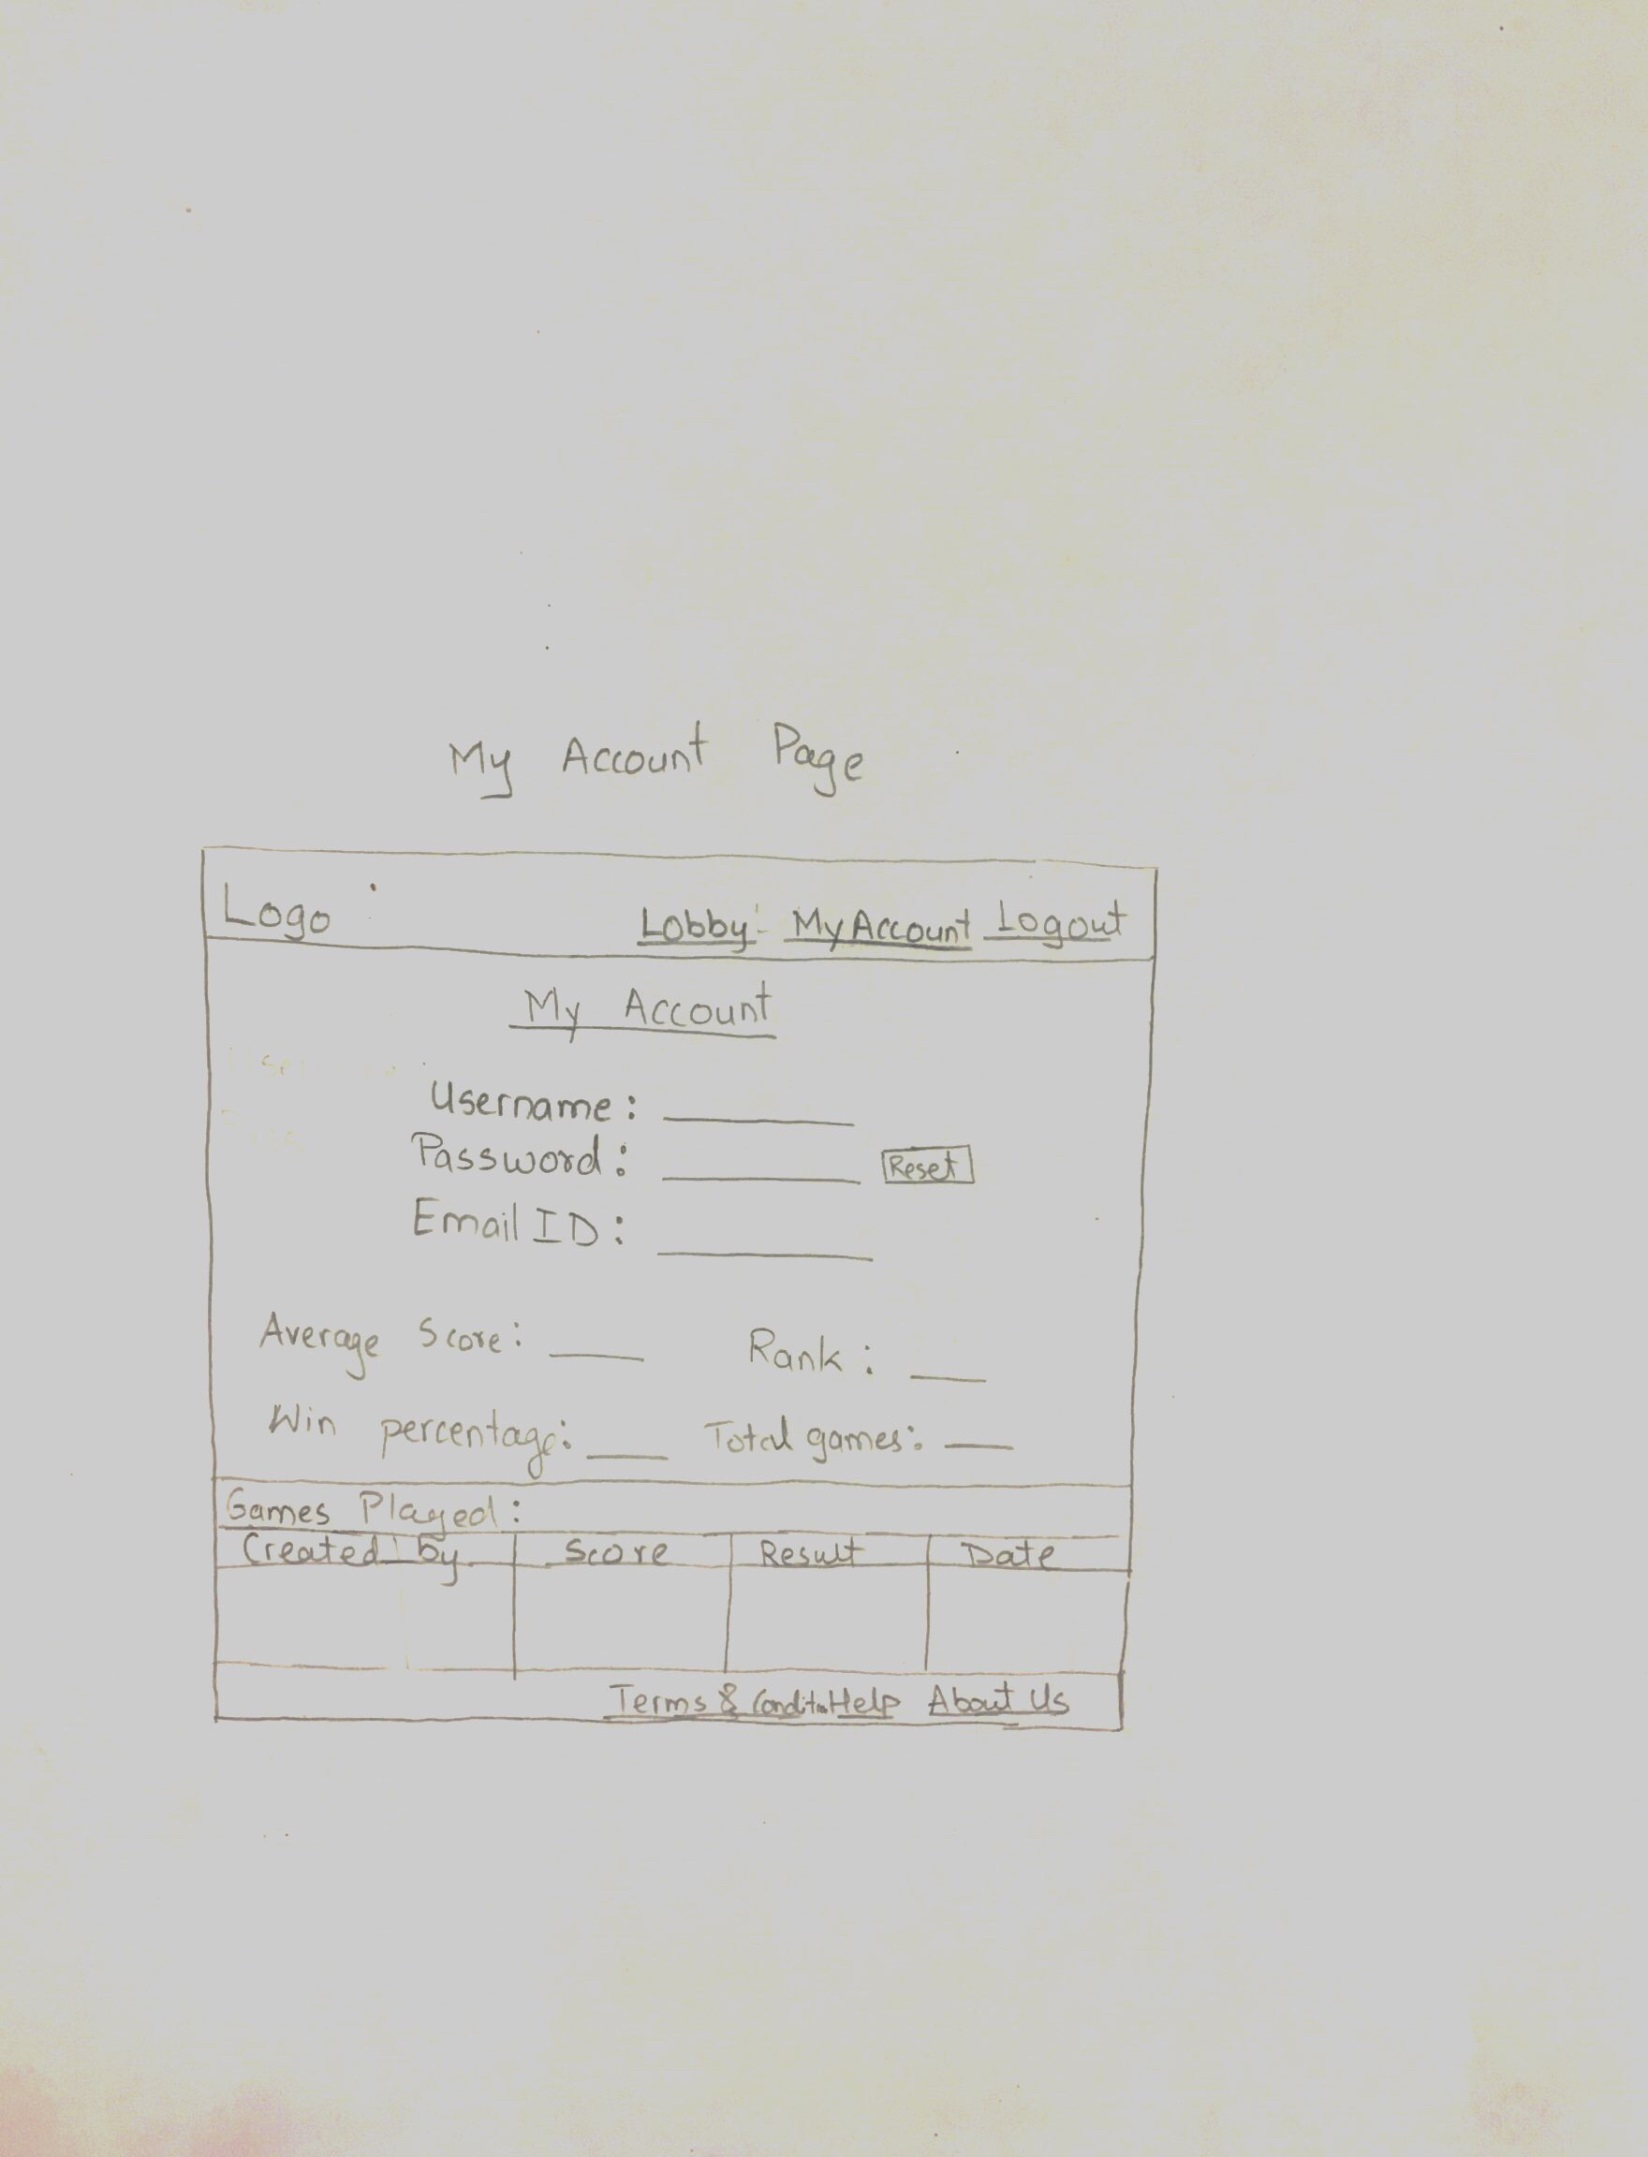 My Account Page
Logo Lobby MyAccount Logout
My Account
Username :
Password : Reset
Email ID :
Average Score : Rank :
Win percentage : Total games :
Games Played :
Created by Score Result Date
Terms & Help About Us